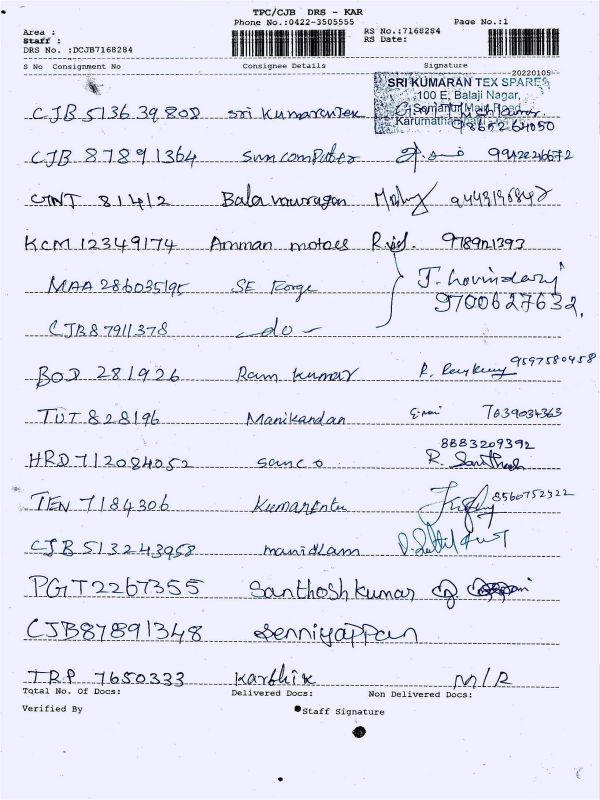 TPC/CJB DRS - KAR
Phone No.:0422-3505555 Page No.:1
Area :
Staff :
DRS No. :DCJB7168284
RS No.:7168284
RS Date:
S No Consignment No Consignee Details Signature
20220105
SRI KUMARAN TEX SPARES
100 E, Balaji Nagar,
CJB 513639808 Sri Kumaran Tex
9865264050
CJB 87891364 Sun computer
CNT 81412 Balamurugan
KCM 12349174 Amman motors 9789121393
MAA 286035195 SE Forge
9700627632.
CJB87911378 -do-
BOD 281926 Ram Kumar 9597580458
TUT 828196 Manikandan 7639034363
8883209392
HRD 712084052 Sanco R. Santhosh
TEN 7184306 8560752322
CJB 513243958
PGT2267355 Santhosh kumar
CJB87891348 Senniyappan
TRP 7650333 Karthik N/R
Total No. Of Docs: Delivered Docs: Non Delivered Docs:
Verified By Staff Signature